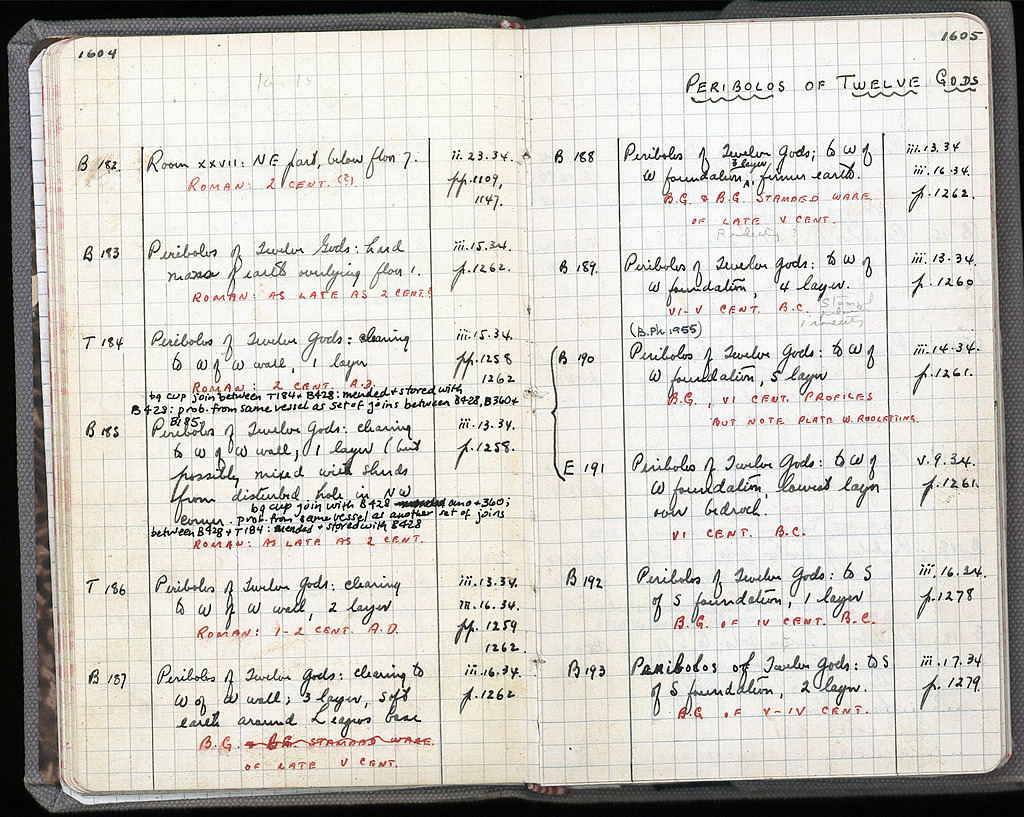 1604
B 182
Room XXVII: NE part, below floor 7.
ii.23.34.
ROMAN: 2 CENT. (?)
pp.1109,
1147.
B 183
Peribolos of Twelve Gods: hard
iii.15.34.
mass of earth overlying floor 1.
p.1262.
ROMAN: AS LATE AS 2 CENT.
T 184
Peribolos of Twelve Gods: clearing
iii.15.34.
to W of W wall, 1 layer
pp.1258
ROMAN: 2 CENT. A.D.
1262
bg cup join between T184 + B428: mended + stored with
B428: prob. from same vessel as set of joins between B428, B360 +
B185
B 185
Peribolos of Twelve Gods: clearing
iii.13.34.
to W of W wall; 1 layer (but
p.1258.
possibly mixed with sherds
from disturbed hole in NW
bg cup join with B428 and +360;
corner. prob. from same vessel as another set of joins
between B428 + T184: mended + stored with B428
ROMAN: AS LATE AS 2 CENT.
T 186
Peribolos of Twelve Gods: clearing
iii.13.34.
to W of W wall, 2 layer
iii.16.34.
ROMAN: 1-2 CENT. A.D.
pp. 1259
1262.
B 187
Peribolos of Twelve Gods: clearing to
iii.16.34.
W of W wall; 3 layer, soft
p.1262
earth around Leagros base
B.G. & B.G. STAMPED WARE.
OF LATE V CENT.
1605
PERIBOLOS OF TWELVE GODS
B 188
Peribolos of Twelve Gods; to W of
iii.13.34
3 layer
W foundation, firmer earth.
iii.16.34.
B.G. & B.G. STAMPED WARE
p.1262.
OF LATE V CENT.
B 189.
Peribolos of Twelve Gods: to W of
iii.13.34
W foundation, 4 layer.
p.1260
VI-V CENT. B.C.
(B.Ph.1955)
B 190
Peribolos of Twelve Gods: to W of
iii.14.34.
W foundation, 5 layer
p.1261.
B.G., VI CENT. PROFILES
BUT NOTE PLATE W. ROULETTING.
E 191
Peribolos of Twelve Gods: to W of
v.9.34.
W foundation, lowest layer
p.1261
over bedrock.
VI CENT. B.C.
B 192
Peribolos of Twelve Gods: to S
iii.16.34.
of S foundation, 1 layer
p.1278
B.G. OF IV CENT. B.C.
B 193
Peribolos of Twelve Gods: to S
iii.17.34
of S foundation, 2 layer.
p.1279.
B.G. OF V-IV CENT.